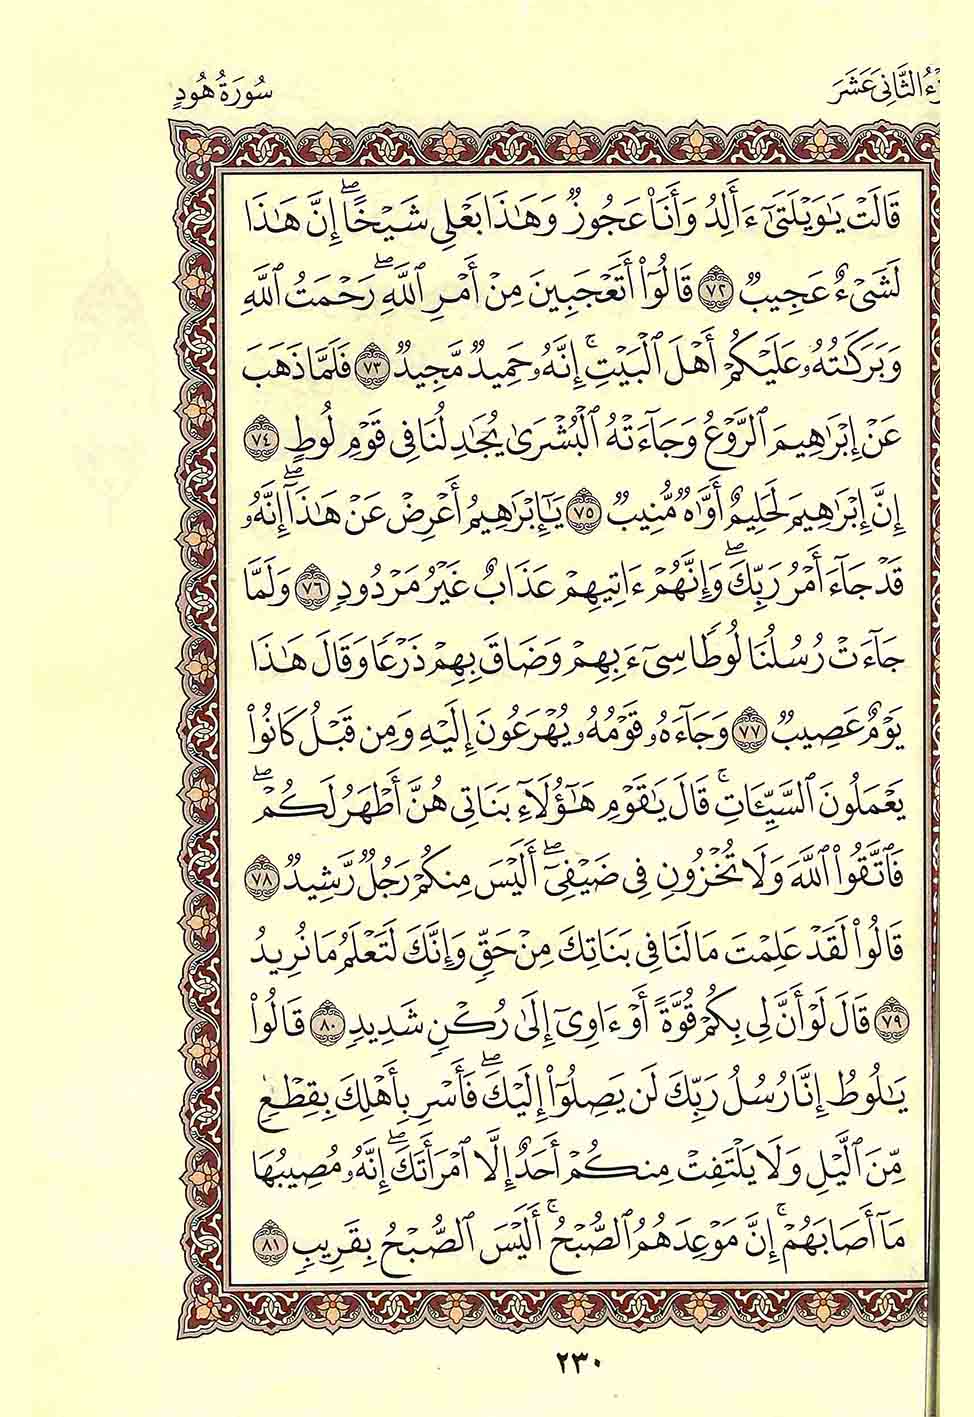 سُورَةُ هُودٍ
الثَّانِيَ عَشَرَ
قَالَتْ يَٰوَيْلَتَىٰٓ ءَأَلِدُ وَأَنَا۠ عَجُوزٌ وَهَٰذَا بَعْلِي شَيْخًاۖ إِنَّ هَٰذَا
لَشَيْءٌ عَجِيبٌ ٧٢ قَالُوٓا۟ أَتَعْجَبِينَ مِنْ أَمْرِ ٱللَّهِۖ رَحْمَتُ ٱللَّهِ
وَبَرَكَٰتُهُۥ عَلَيْكُمْ أَهْلَ ٱلْبَيْتِۚ إِنَّهُۥ حَمِيدٌ مَّجِيدٌ ٧٣ فَلَمَّا ذَهَبَ
عَنْ إِبْرَٰهِيمَ ٱلرَّوْعُ وَجَآءَتْهُ ٱلْبُشْرَىٰ يُجَٰدِلُنَا فِي قَوْمِ لُوطٍ ٧٤
إِنَّ إِبْرَٰهِيمَ لَحَلِيمٌ أَوَّٰهٌ مُّنِيبٌ ٧٥ يَٰٓإِبْرَٰهِيمُ أَعْرِضْ عَنْ هَٰذَآۖ إِنَّهُۥ
قَدْ جَآءَ أَمْرُ رَبِّكَۖ وَإِنَّهُمْ ءَاتِيهِمْ عَذَابٌ غَيْرُ مَرْدُودٍ ٧٦ وَلَمَّا
جَآءَتْ رُسُلُنَا لُوطًا سِيٓءَ بِهِمْ وَضَاقَ بِهِمْ ذَرْعًا وَقَالَ هَٰذَا
يَوْمٌ عَصِيبٌ ٧٧ وَجَآءَهُۥ قَوْمُهُۥ يُهْرَعُونَ إِلَيْهِ وَمِن قَبْلُ كَانُوا۟
يَعْمَلُونَ ٱلسَّيِّـَٔاتِۚ قَالَ يَٰقَوْمِ هَٰٓؤُلَآءِ بَنَاتِي هُنَّ أَطْهَرُ لَكُمْۖ
فَٱتَّقُوا۟ ٱللَّهَ وَلَا تُخْزُونِ فِي ضَيْفِيٓۖ أَلَيْسَ مِنكُمْ رَجُلٌ رَّشِيدٌ ٧٨
قَالُوا۟ لَقَدْ عَلِمْتَ مَا لَنَا فِي بَنَاتِكَ مِنْ حَقٍّ وَإِنَّكَ لَتَعْلَمُ مَا نُرِيدُ
٧٩ قَالَ لَوْ أَنَّ لِي بِكُمْ قُوَّةً أَوْ ءَاوِيٓ إِلَىٰ رُكْنٍ شَدِيدٍ ٨٠ قَالُوا۟
يَٰلُوطُ إِنَّا رُسُلُ رَبِّكَ لَن يَصِلُوٓا۟ إِلَيْكَۖ فَأَسْرِ بِأَهْلِكَ بِقِطْعٍ
مِّنَ ٱلَّيْلِ وَلَا يَلْتَفِتْ مِنكُمْ أَحَدٌ إِلَّا ٱمْرَأَتَكَۖ إِنَّهُۥ مُصِيبُهَا
مَآ أَصَابَهُمْۚ إِنَّ مَوْعِدَهُمُ ٱلصُّبْحُۚ أَلَيْسَ ٱلصُّبْحُ بِقَرِيبٍ ٨١
٢٣٠